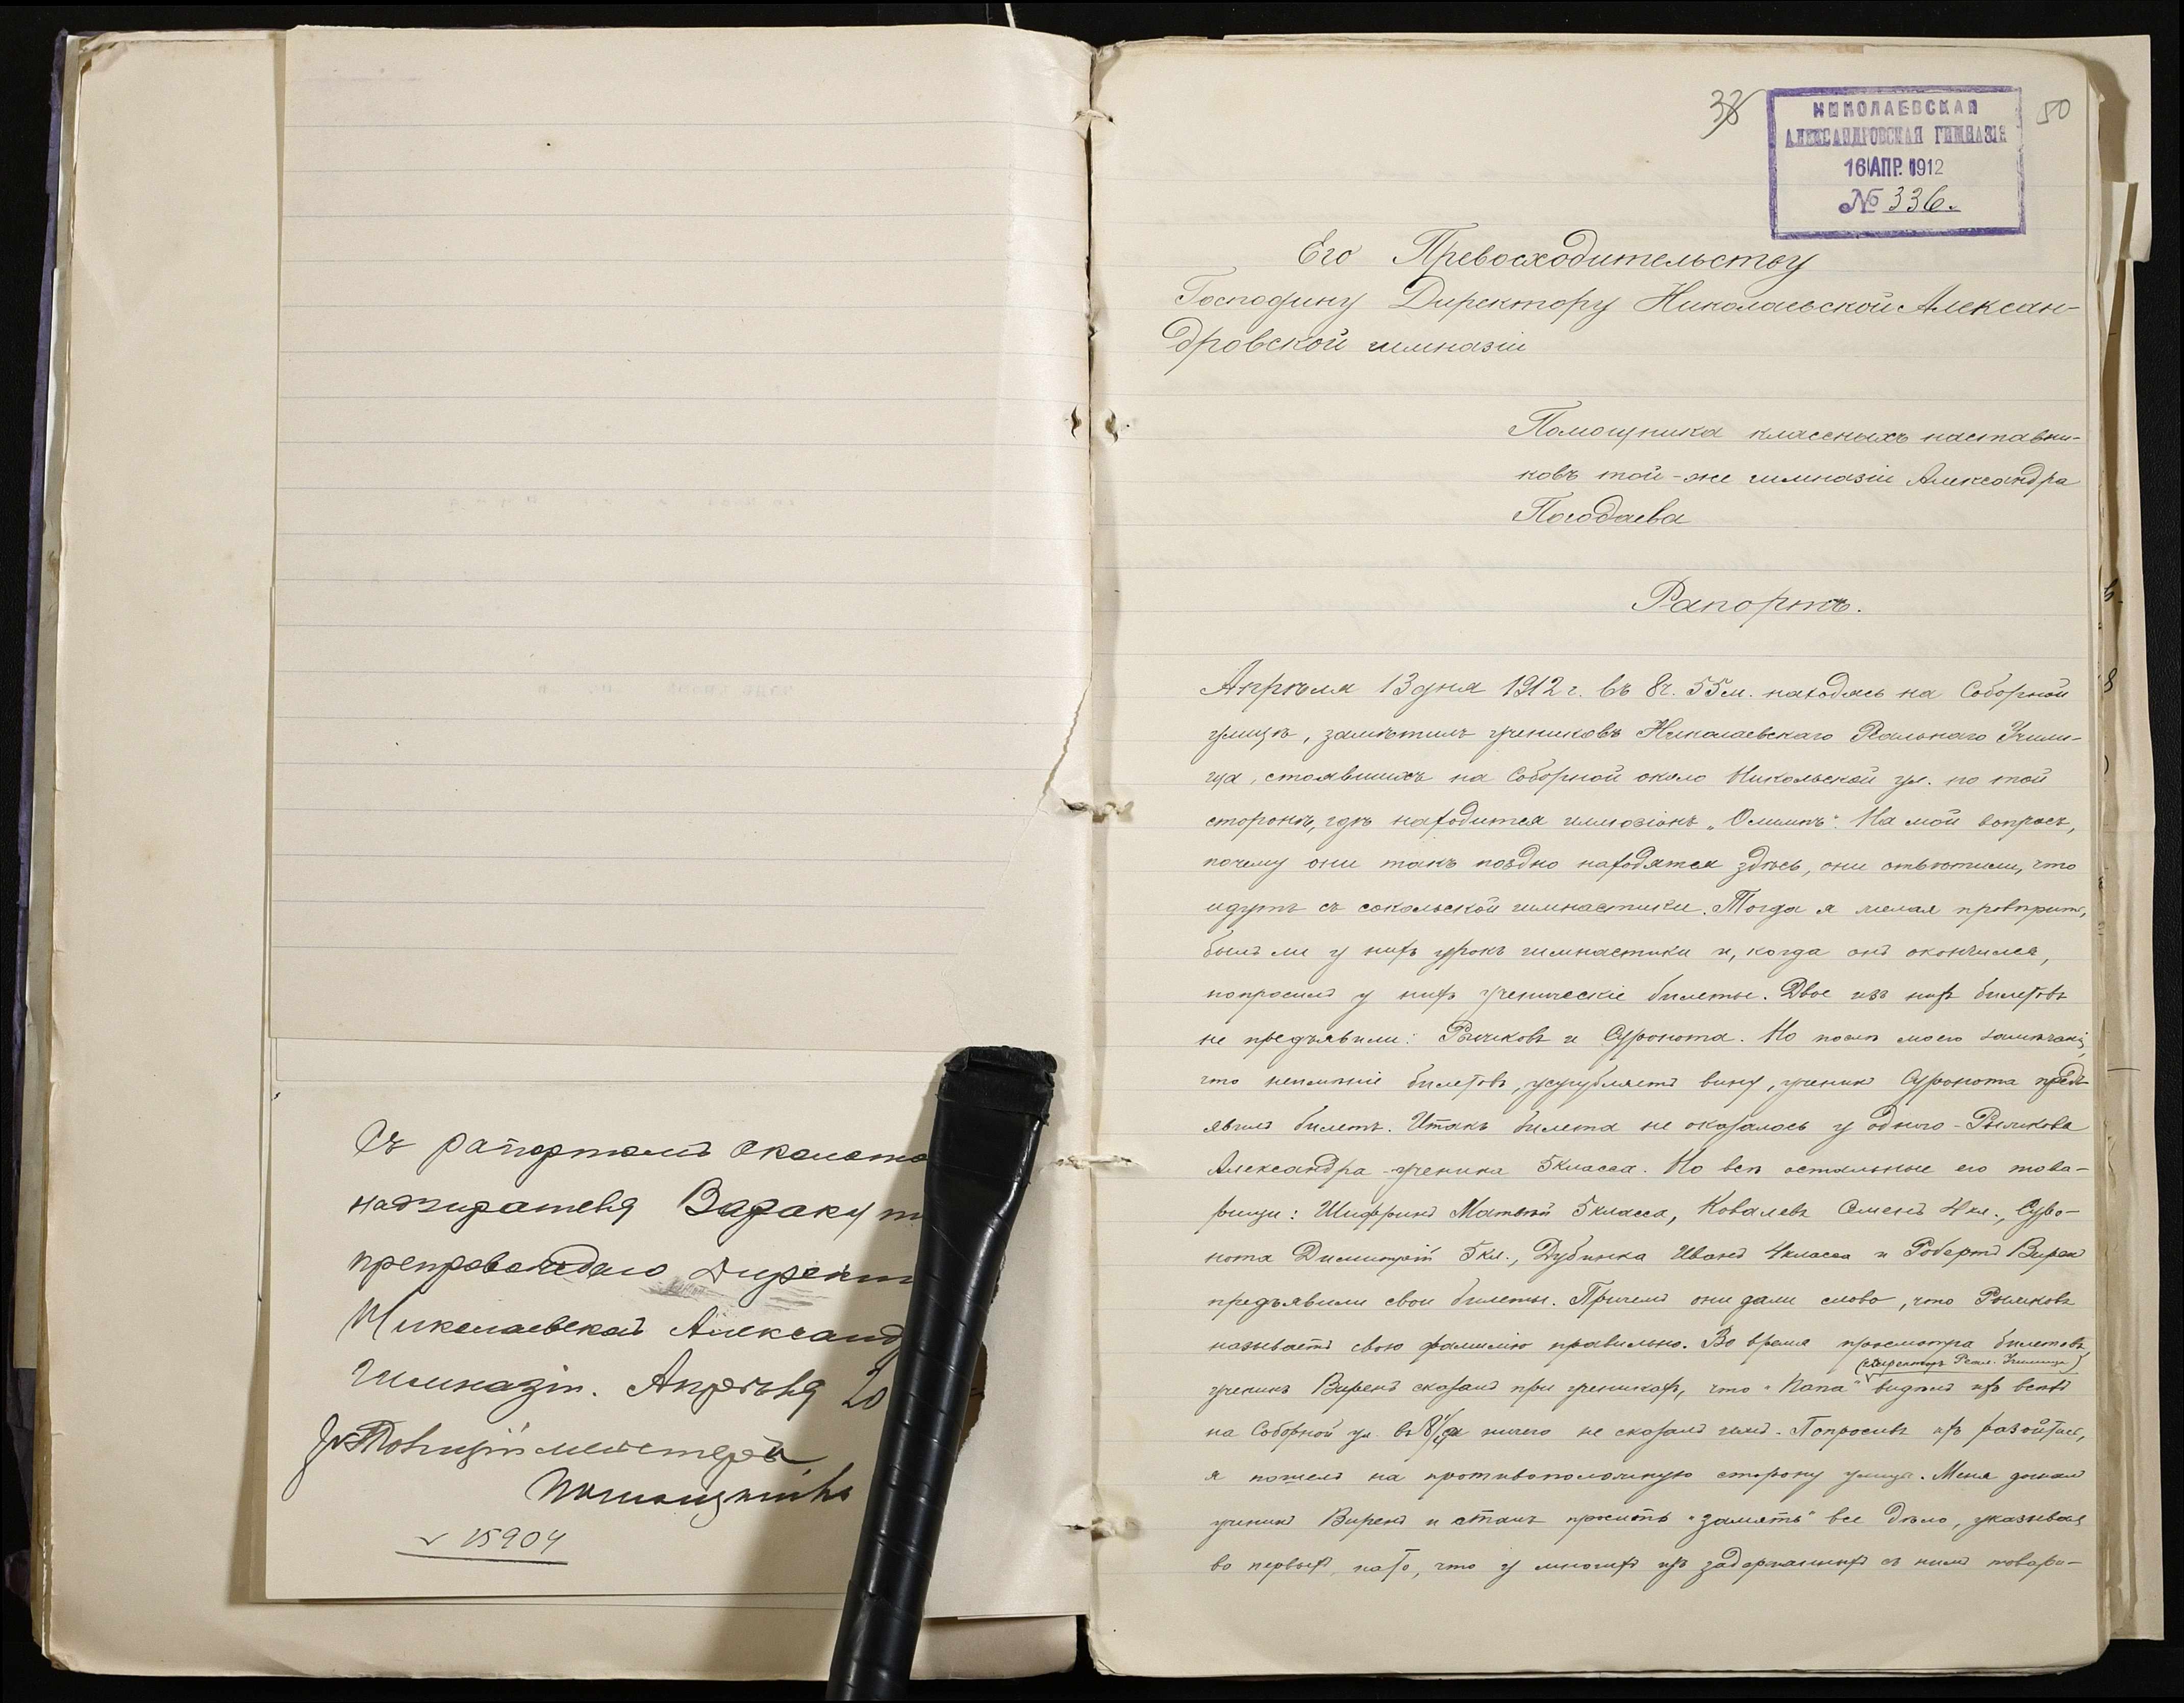 Съ рапортомъ около
надзирателя
препровождаю
Николаевской Александ
Гимназіи. Апрѣля 20
Полиціймейстера
15904
38
50
НИКОЛАЕВСКАЯ
АЛЕКСАНДРОВСКАЯ ГИМНАЗІЯ
16 АПР. 1912
№ 336.
Его Превосходительству
Господину Директору Николаевской Алексан-
дровской гимназіи
Помощника классныхъ наставни-
ковъ той-же гимназіи Александра
Погодаева
Рапортъ.
Апрѣля 13 дня 1912 г. въ 8 ч. 55 м. находясь на Соборной
улицѣ, замѣтилъ учениковъ Николаевскаго Реальнаго Учили-
ща, стоявшихъ на Соборной около Никольской ул. по той
сторонѣ, гдѣ находится иллюзіонъ „Олимпъ". На мой вопросъ,
почему они такъ поздно находятся здѣсь, они отвѣтили, что
идутъ съ сокольской гимнастики. Тогда я желая провѣрить,
былъ ли у нихъ урокъ гимнастики и, когда онъ окончился,
попросилъ у нихъ ученическіе билеты. Двое изъ нихъ билетовъ
не предъявили: Рыжковъ и Суронота. Но послѣ моего замѣчанія,
что неимѣніе билетовъ, усугубляетъ вину, ученикъ Суронота предъ-
явилъ билетъ. Итакъ билета не оказалось у одного - Рыжкова
Александра - ученика 5 класса. Но всѣ остальные его това-
рищи: Шифринъ Матвѣй 5 класса, Ковалевъ Семенъ 4 кл., Суро-
нота Димитрій 5 кл., Дубинка Иванъ 4 класса и Робертъ Вирен
предъявили свои билеты. Причемъ они дали слово, что Рыжковъ
называетъ свою фамилію правильно. Во время просмотра билетовъ,
(директоръ Реал. Училища)
ученикъ Виренъ сказалъ при ученикахъ, что „Папа" видѣлъ ихъ всѣхъ
на Соборной ул. въ 8 1/4 и ничего не сказалъ имъ. Попросивъ ихъ разойтись,
я пошелъ на противоположную сторону улицы. Меня догналъ
ученикъ Виренъ и сталъ просить „замять" все дѣло, указывая
во первыхъ на то, что у многихъ изъ задержанныхъ съ нимъ товари-